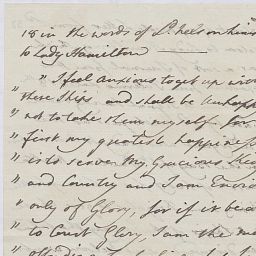 is in the words of Ld. Nelson him
to Lady Hamilton
" I feel anxious to get up with
" these Ships, and shall be unhapp
" not to take them myself for
" first my greatest happiness
" is to serve my Gracious King
" and Country and I am Envio
" only of Glory, for if it be a
" to Covet Glory, I am the mo